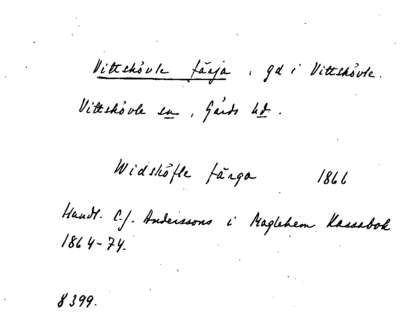 Vittskövle färja, gd i Vittskövle.
Vittskövle sn, Gärds hd.
Widsköfle färga 1866
Handl. C.J. Anderssons i Maglehem Kassabok
1864-74.
8399.